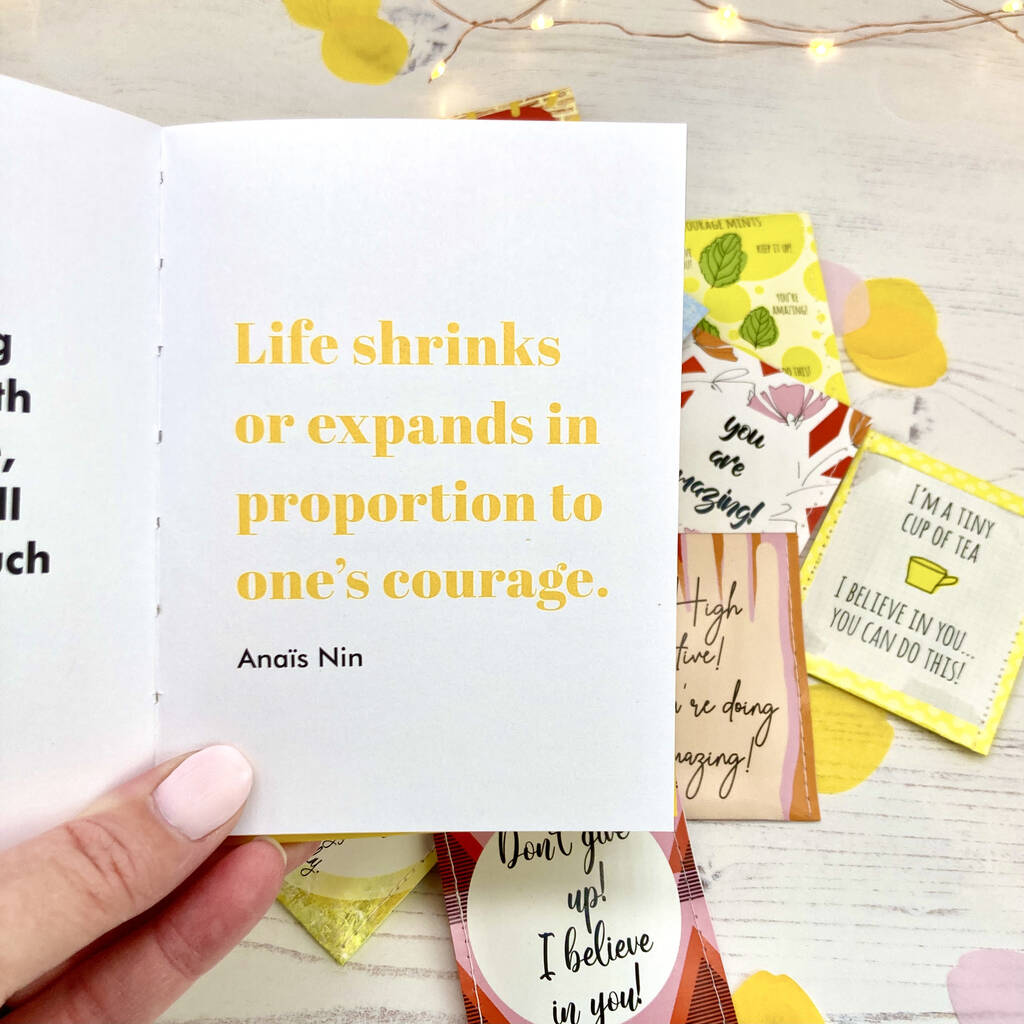 Life shrinks
or expands in
proportion to
one's courage.
Anaïs Nin
KEEP IT UP!
YOU'RE
AMAZING!
DO THIS!
you
are
amazing!
I'M A TINY
CUP OF TEA
I BELIEVE IN YOU...
YOU CAN DO THIS!
High
five!
you're doing
amazing!
Don't give
up!
I believe
in you!